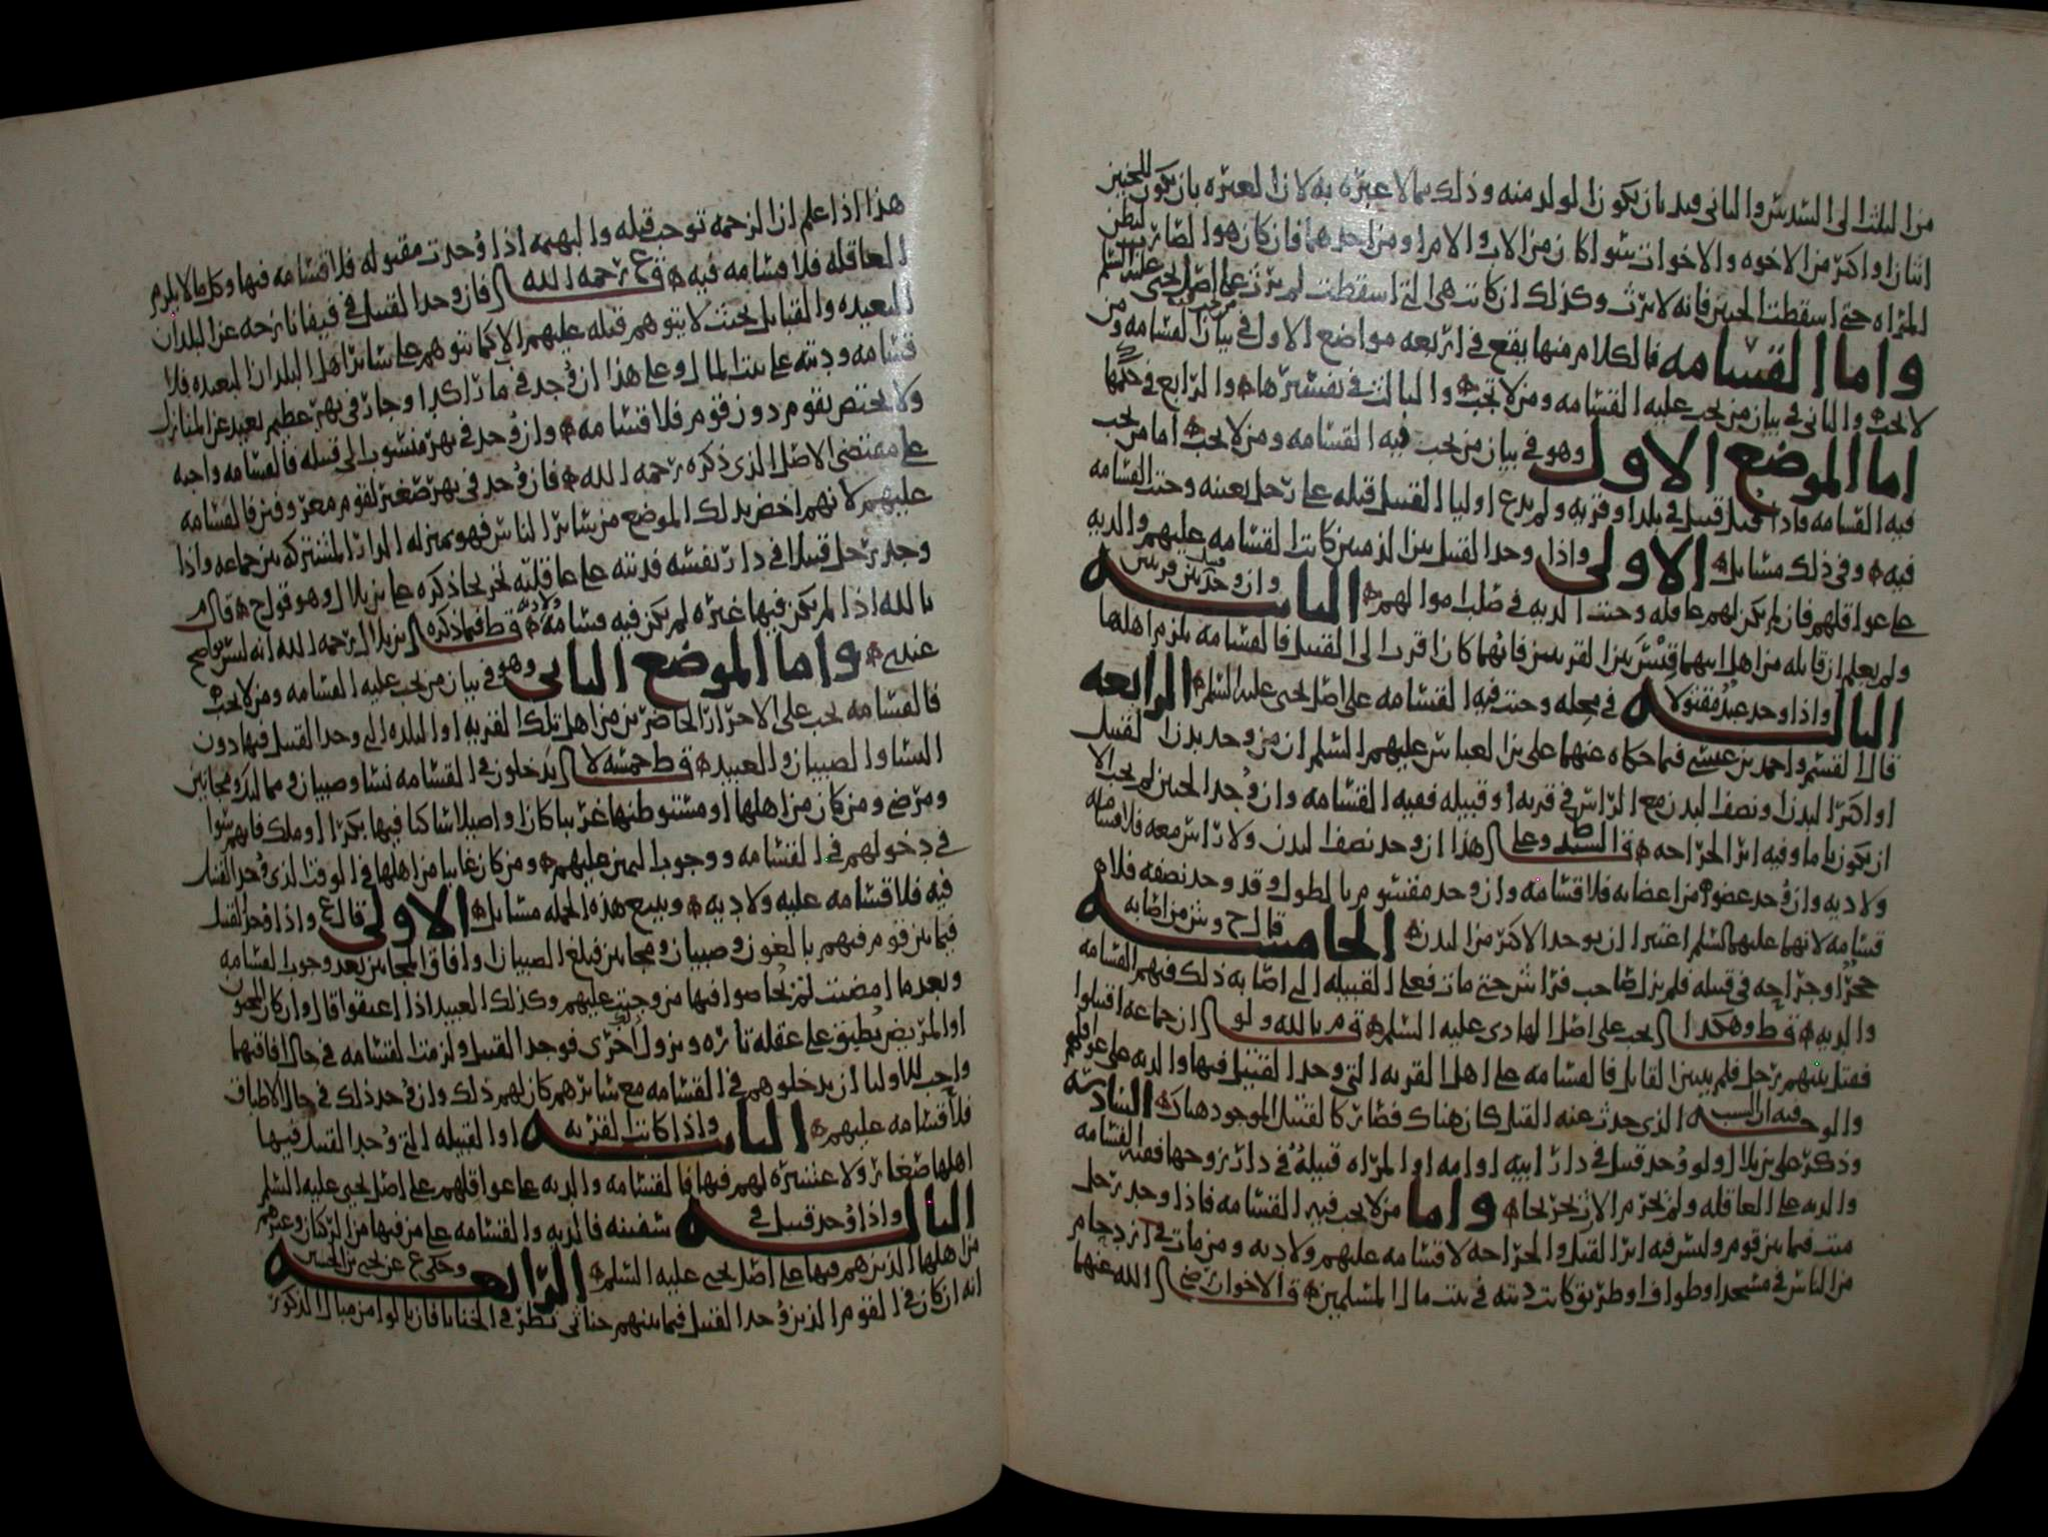 من الثلث الى السدس والثاني فبد بان يكون الولد منه وذلك مما لا عبره به لان العبره بان يكون للجنين
اثنان او اكثر من الاخوه والاخوات سوا كان من الاب والام او من احدهما فان كان هو الضارب لبطن
المراه حتى اسقطت الجنين فانه لا يرث وكذلك ان كانت هي التي اسقطت لم يرث على اصل يحيى عليه السلم
واما القسامه فالكلام منها يقع في اربعه مواضع الاول في بيان من تجب فيه القسامه ومن
لا يجب والثاني في بيان من يجب عليه القسامه ومن لا تجب والثالث في تفسيرها والرابع في حكمها
اما الموضع الاول وهو في بيان من يجب فيه القسامه ومن لا يجب اما من يجب
فيه القسامه فاذا قتل قتيل في بلد او قريه ولم يدع اوليا القتيل قتله على رجل بعينه وجبت القسامه
فيه وفي ذلك مسايل الاولى واذا وجد القتيل بين الذميين كانت القسامه عليهم والديه
على عواقلهم فان لم يكن لهم عاقله وجبت الديه في صلب اموالهم الثانيه وان وجد قتيل بين قريتين
ولم يعلم ان قاتله من اهل ايهما قيس بين القريتين فايهما كان اقرب الى القتيل فالقسامه يلزم اهلها
الثالثه واذا وجد عبد مقتولا في محله وجبت فيه القسامه على اصل يحيى عليه السلم الرابعه
قال القسم واحمد بن عيسى فيما حكاه عنهما علي بن العباس عليهم السلم ان من وجد بدن القتيل
او اكثر البدن ونصف البدن مع الراس في قريه او قبيله ففيه القسامه وان وجد الجنين لم يجب الا
ان يكون تاما وفيه اثر الجراحه ق السيد وعلى هذا ان وجد نصف البدن ولا راس معه فلا قسامه
ولا ديه وان وجد عضو من اعضايه فلا قسامه وان وجد مقسوم بالطول وقد وجد نصفه فلا
قسامه لانهما عليهما السلم اعتبرا ان يوجد الاكثر من البدن الخامسه قال ح ومن اصابه
حجر او جراحه في قبيله فلم يزل صاحب فراش حتى مات فعلى القبيله التي اصابه ذلك فيهم القسامه
والديه ق ط وهكذا يجب على اصل الهادي عليه السلم ق م بالله ولو ان جماعه اقتتلوا
فقتل بينهم رجل فلم يتبين القاتل فالقسامه على اهل القريه التي وجد القتيل فيها والديه على عواقلهم
والوجه فيه ان السبب الذي حدث عنه القتل كان هناك فصار كالقتيل الموجود هناك السادسه
وذكر علي بن بلال ولو وجد قتيل في دار ابيه او امه او المراه قتيله في دار زوجها ففيه القسامه
والديه على العاقله ولم يحرم الارث تخريجا واما من لا يجب فيه القسامه فاذا وجد رجل
ميت فيما بين قوم وليس فيه اثر القتل والجراحه لا قسامه عليهم ولا ديه ومن مات في ازدحام
من الناس في مسجد او طواف او طريق كانت ديته في بيت مال المسلمين ق الاخوان رضي الله عنهما
هذا اذا علم ان الزحمه توجب قتله والبهيمه اذا وجدت مقتوله فلا قسامه فيها وكل ما لا يلزم
العاقله فلا قسامه فيه ق ع رحمه الله فان وجد القتيل في فيفا نازحه عن البلدان
البعيده والقبايل بحيث لا يتوهم قتله عليهم الا كما يتوهم على ساير اهل البلدان البعيده فلا
قسامه وديته على بيت المال وعلى هذا ان وجد في مار اكبرا وجار في نهر عظيم بعيد عن المنازل
ولا يختص بقوم دون قوم فلا قسامه وان وجد في نهر منسوب الى قبيله فالقسامه واجبه
على مقتضى الاصل الذي ذكره رحمه الله فان وجد في نهر صغير لقوم معروفين فالقسامه
عليهم لانهم اخص بذلك الموضع من ساير الناس فهو بمنزله الدار المشتركه بين جماعه واذا
وجد رجل قتيلا في دار نفسه فديته على عاقلته تخريجا ذكره علي بن بلال وهو قول ح قال م
بالله اذا لم يكن فيها غيره لم يكن فيه قسامه ولا ديه ق ط فيما ذكره ابن بلال رحمه الله انه ليس بواضح
عندي واما الموضع الثاني وهو في بيان من يجب عليه القسامه ومن لا يجب
فالقسامه يجب على الاحرار الحاضرين من اهل تلك القريه او البلده التي وجد القتيل فيها دون
النسا والصبيان والعبيد ق ط خمسه لا يدخلون في القسامه نسا وصبيان ومماليك ومجانين
ومرضى ومن كان من اهلها او مستوطنها غريبا كان او اصيلا ساكنا فيها بكرا او ملك فانهم سوا
في دخولهم في القسامه ووجوب اليمين عليهم ومن كان غايبا من اهلها في الوقت الذي وجد القتيل
فيه فلا قسامه عليه ولا ديه ويتبع هذه الجمله مسايل الاولى قال ع واذا وجد القتيل
فيما بين قوم فيهم بالغون وصبيان ومجانين فبلغ الصبيان وافاق المجانين بعد وجوب القسامه
وبعد ما امضيت لم يحاصوا فيها من وجبت عليهم وكذلك العبيد اذا اعتقوا قال وان كان المجنون
او المريض يطبق على عقله تاره ويزول اخرى فوجد القتيل ولزمت القسامه في حال افاقتهما
واحب للاوليا ان يدخلوهم في القسامه مع سايرهم كان لهم ذلك وان وجد ذلك في حال الاطباق
فلا قسامه عليهم الثانيه واذا كانت القريه او القبيله التي وجد القتيل فيها
اهلها صغار ولا عشيره لهم فيها فالقسامه والديه على عواقلهم على اصل يحيى عليه السلم
الثالثه واذا وجد قتيل في سفينه فالديه والقسامه على من فيها من الركبان وغيرهم
من اهلها الذين هم فيها على اصل يحيى عليه السلم الرابعه وحكى ع عن يحيى بن الحسين
انه ان كان في القوم الذين وجد القتيل فيما بينهم خناثى نظر في الخناثا فان بالوا من مبال الذكور